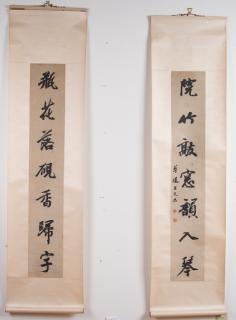 院竹敲窗韻入琴
瓶花落硯香歸字